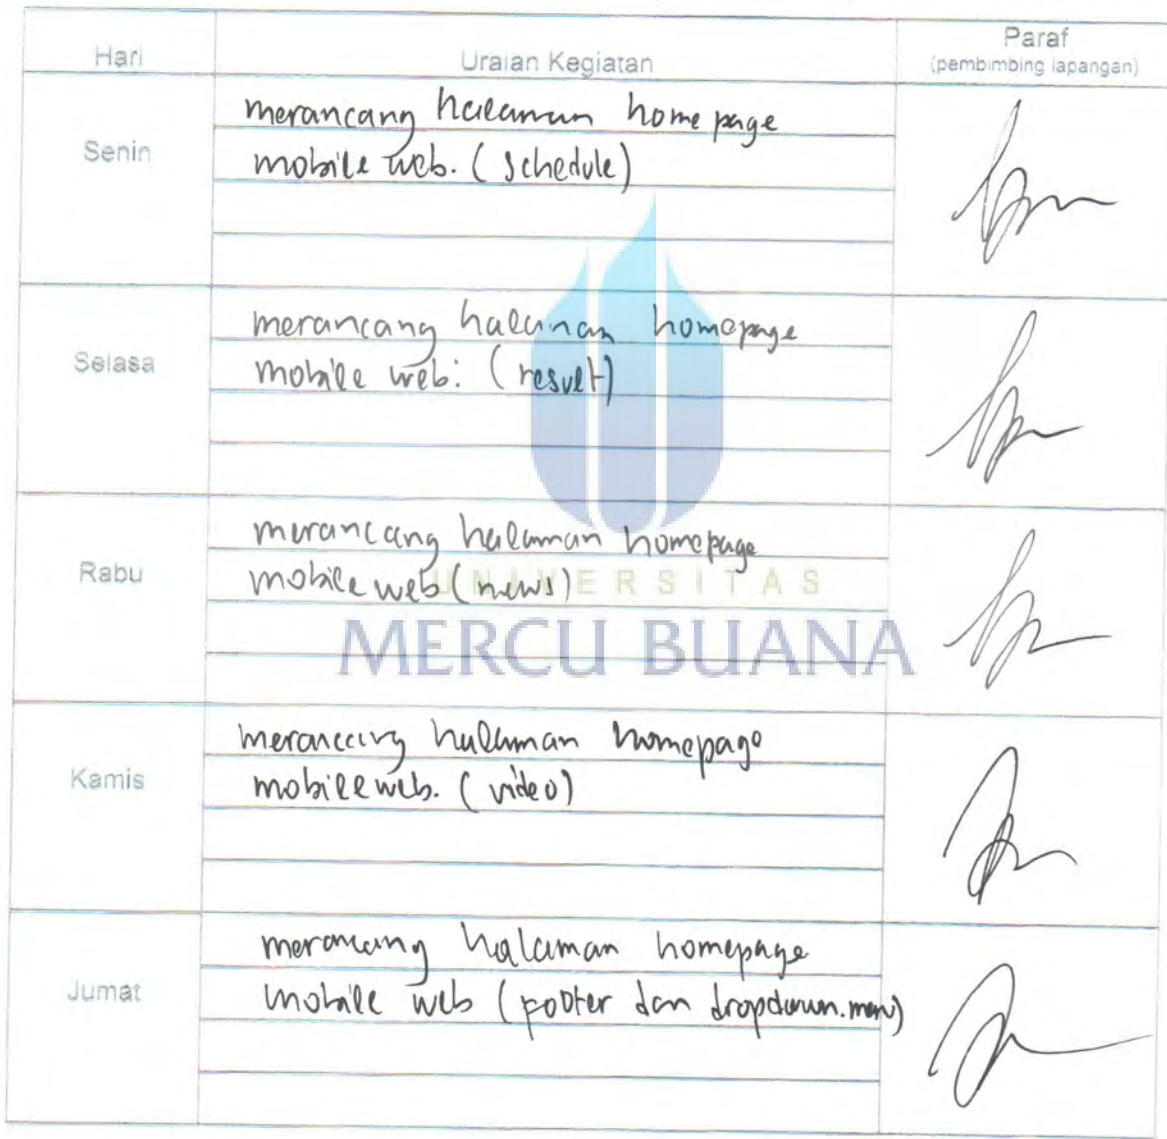 Hari
Uraian Kegiatan
Paraf
(pembimbing lapangan)
Senin
merancang halaman home page
mobile web. (schedule)
Selasa
merancang halaman homepage
mobile web. (result)
Rabu
merancang halaman homepage
mobile web (news)
UNIVERSITAS
MERCU BUANA
Kamis
merancang halaman homepage
mobile web. (video)
Jumat
merancang halaman homepage
mobile web (footer dan dropdown.menu)